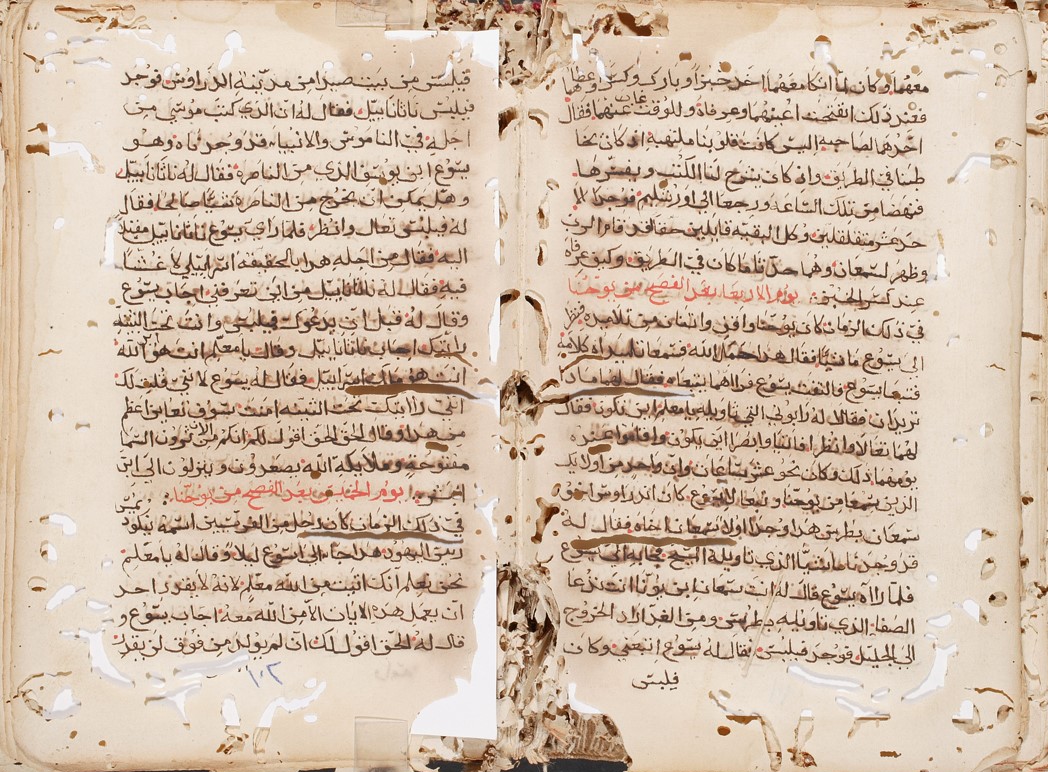 معهما وكان لما اتكا معهما اخذ خبزا وبارك وكسر وعطاهما
فعند ذلك انفتحت اعينهما وعرفاه وللوقت غاب عنهما فقال
احدهما لصاحبه اليس كانت قلوبنا ملتهبه اذ كان يخا
طبنا في الطريق واذ كان يشرح لنا الكتب ويفسرها
فنهضا من تلك الساعه ورجعا الى اورشليم فوجدا الا
حد عشر وكل البقيه قايلين حقا قد قام الرب
وظهر لسمعان وهما حدثا بما كان في الطريق وكيف عرفاه
عند كسر الخبز يوم الاربعا بعد الفصح من يوحنا
في ذلك الزمان كان يوحنا واقف واثنان من تلاميذه فنظر
الى يسوع ماشيا فقال هذا حمل الله فسمعا تلميذاه كلامه
فتبعا يسوع والتفت يسوع فراهما يتبعاه فقال لهما ماذا
تريدان فقالا له رابوني الذي تاويله يا معلم اين تكون فقال
لهما تعالا وانظرا فاتيا وابصرا اين يكون واقاموا عنده
يومهما ذلك وكان نحو عشر ساعات وان واحد من اوليك
الذين سمعا من يوحنا وتبعا يسوع كان اندراوس اخو
سمعان هذا وجد اولا سمعان اخاه فقال له
قد وجدنا ماسيا الذي تاويله المسيح فجا به الى يسوع
فلما راه يسوع قال له انت سمعان ابن يونا انت تدعا
الصفا الذي تاويله بطرس ومن الغد اراد الخروج
الى الجليل فوجد فيلبس فقال له يسوع اتبعني وكان
فيلبس
فيلبس من بيت صيدا من مدينة اندراوس فوجد
فيلبس ناثانابيل فقال له ان الذي كتب موسى من
اجله في الناموس والانبياء قد وجدناه وهو
يسوع ابن يوسف الذي من الناصره فقال له ناثانابيل
وهل يمكن ان يخرج من الناصره شيا صالحا فقال
له فيلبس تعال وانظر فلما راى يسوع ناثانابيل مقبلا
اليه فقال من اجله هذا بالحقيقه اسراييلي لا غش
فيه فقال له ناثانابيل من اين تعرفني اجاب يسوع
وقال له قبل ان يدعوك فيلبس وانت تحت التينه
رايتك اجاب ناثانابيل وقال يا معلم انت هو ابن الله
انت هو ملك اسراييل فقال له يسوع لاني قلت لك
انني رايتك تحت التينه امنت سوف تعاين اعظم
من هذا وقال الحق الحق اقول لكم انكم من الان ترون السما
مفتوحة وملايكة الله يصعدون وينزلون الى ابن
البشر يوم الخميس بعد الفصح من يوحنا
في ذلك الزمان كان رجل من الفريسيين اسمه نيقود
رييس اليهود هذا جا الى يسوع ليلا وقال له يا معلم
نحن نعلم انك اتيت من الله معلم لانه لا يقدر احد
ان يعمل هذه الايات الا من الله معه اجاب يسوع و
قال له الحق اقول لك ان لم يولد من فوق لن يقدر
١٠٢